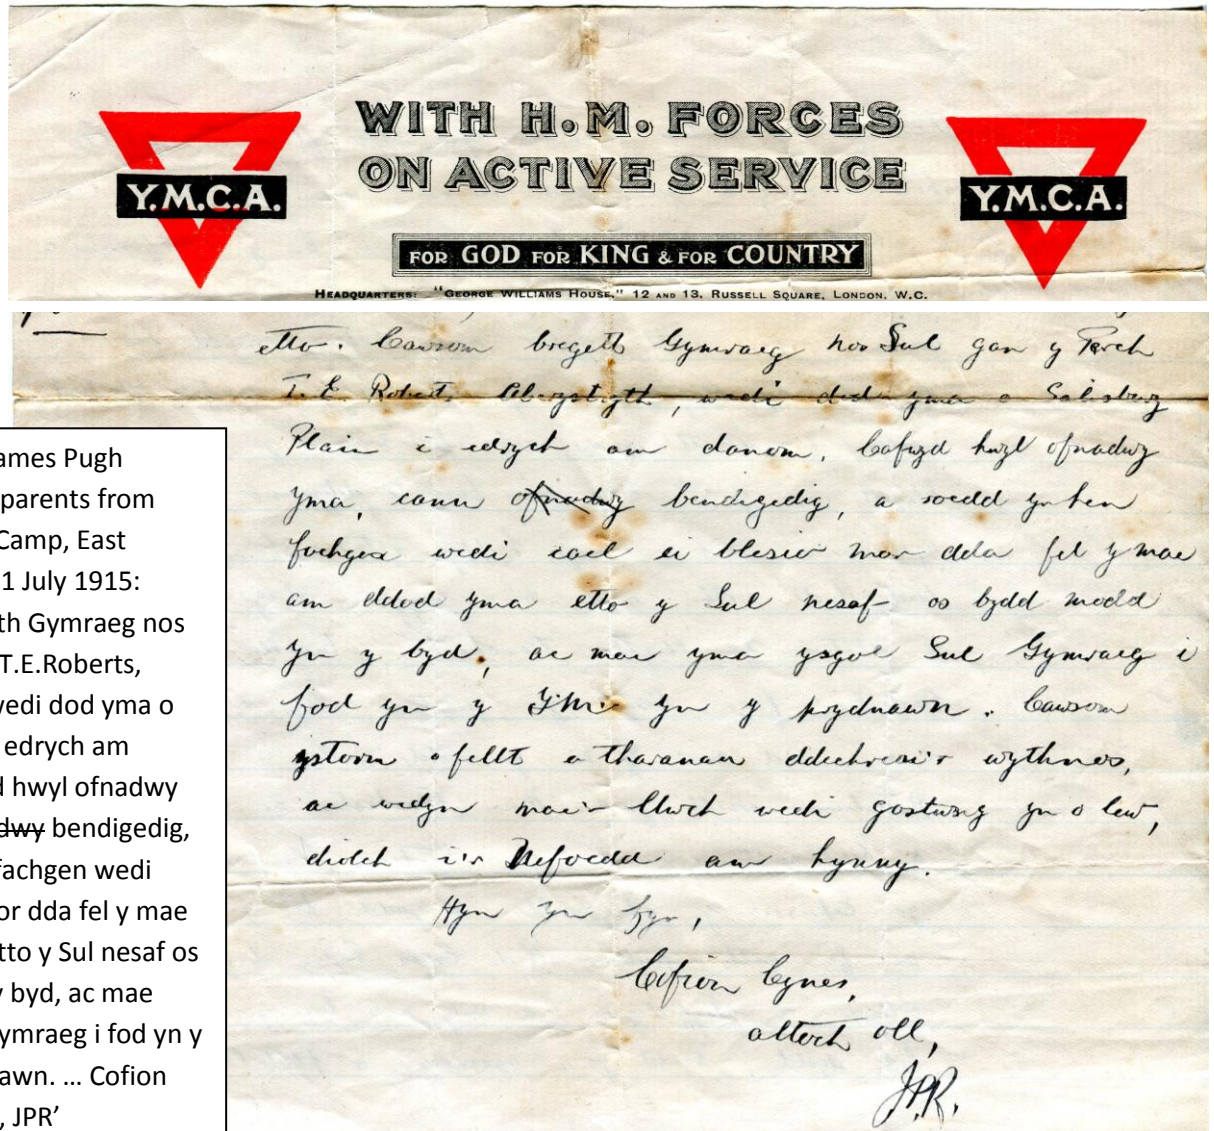 WITH H.M. FORCES
ON ACTIVE SERVICE
Y.M.C.A.
Y.M.C.A.
FOR GOD FOR KING & FOR COUNTRY
HEADQUARTERS: "GEORGE WILLIAMS HOUSE," 12 AND 13, RUSSELL SQUARE, LONDON, W.C.
etto. Cawsom bregeth Gymraeg nos Sul gan y Parch
T. E. Roberts Aberystyth, wedi dod yma o Salisbury
Plain i edrych am danom, Cafwyd hwyl ofnadwy
yma, canu ofnadwy bendigedig, a roedd yr hen
fachgen wedi cael ei blesio mor dda fel y mae
am ddod yma etto y Sul nesaf os bydd modd
yn y byd, ac mae yma ysgol Sul Gymraeg i
fod yn y yn y prydnawn. Cawsom
ystorm o fellt a tharanau ddechreu'r wythnos,
ac wedyn mae'r llwch wedi gostwng yn o lew,
diolch i'r Nefoedd am hynny.
Hyn yn fyr,
Cofion Cynes,
attoch oll,
JPR.
ames Pugh
parents from
Camp, East
1 July 1915:
th Gymraeg nos
T.E.Roberts,
wedi dod yma o
edrych am
d hwyl ofnadwy
dwy bendigedig,
fachgen wedi
or dda fel y mae
tto y Sul nesaf os
y byd, ac mae
ymraeg i fod yn y
awn. … Cofion
, JPR’